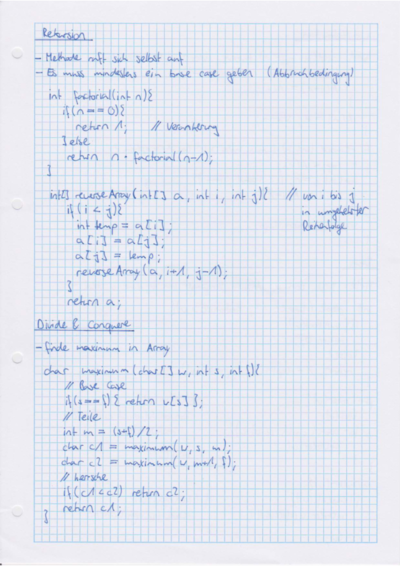 Rekursion
- Methode ruft sich selbst auf
- Es muss mindestens ein base case geben (Abbruchbedingung)
int factorial(int n){
if(n == 0){
return 1; // Verankerung
} else
return n * factorial(n-1);
}
int[] reverseArray(int[] a, int i, int j){ // von i bis j
if(i < j){ in umgekehrter
int temp = a[i]; Reihenfolge
a[i] = a[j];
a[j] = temp;
reverseArray(a, i+1, j-1);
}
return a;
Divide & Conquere
- finde maximum in Array
char maximum(char[] v, int s, int f){
// Base Case
if(s==f) { return v[s] };
// Teile
int m = (s+f)/2;
char c1 = maximum(v, s, m);
char c2 = maximum(v, m+1, f);
// herrsche
if(c1<c2) return c2;
return c1;
}